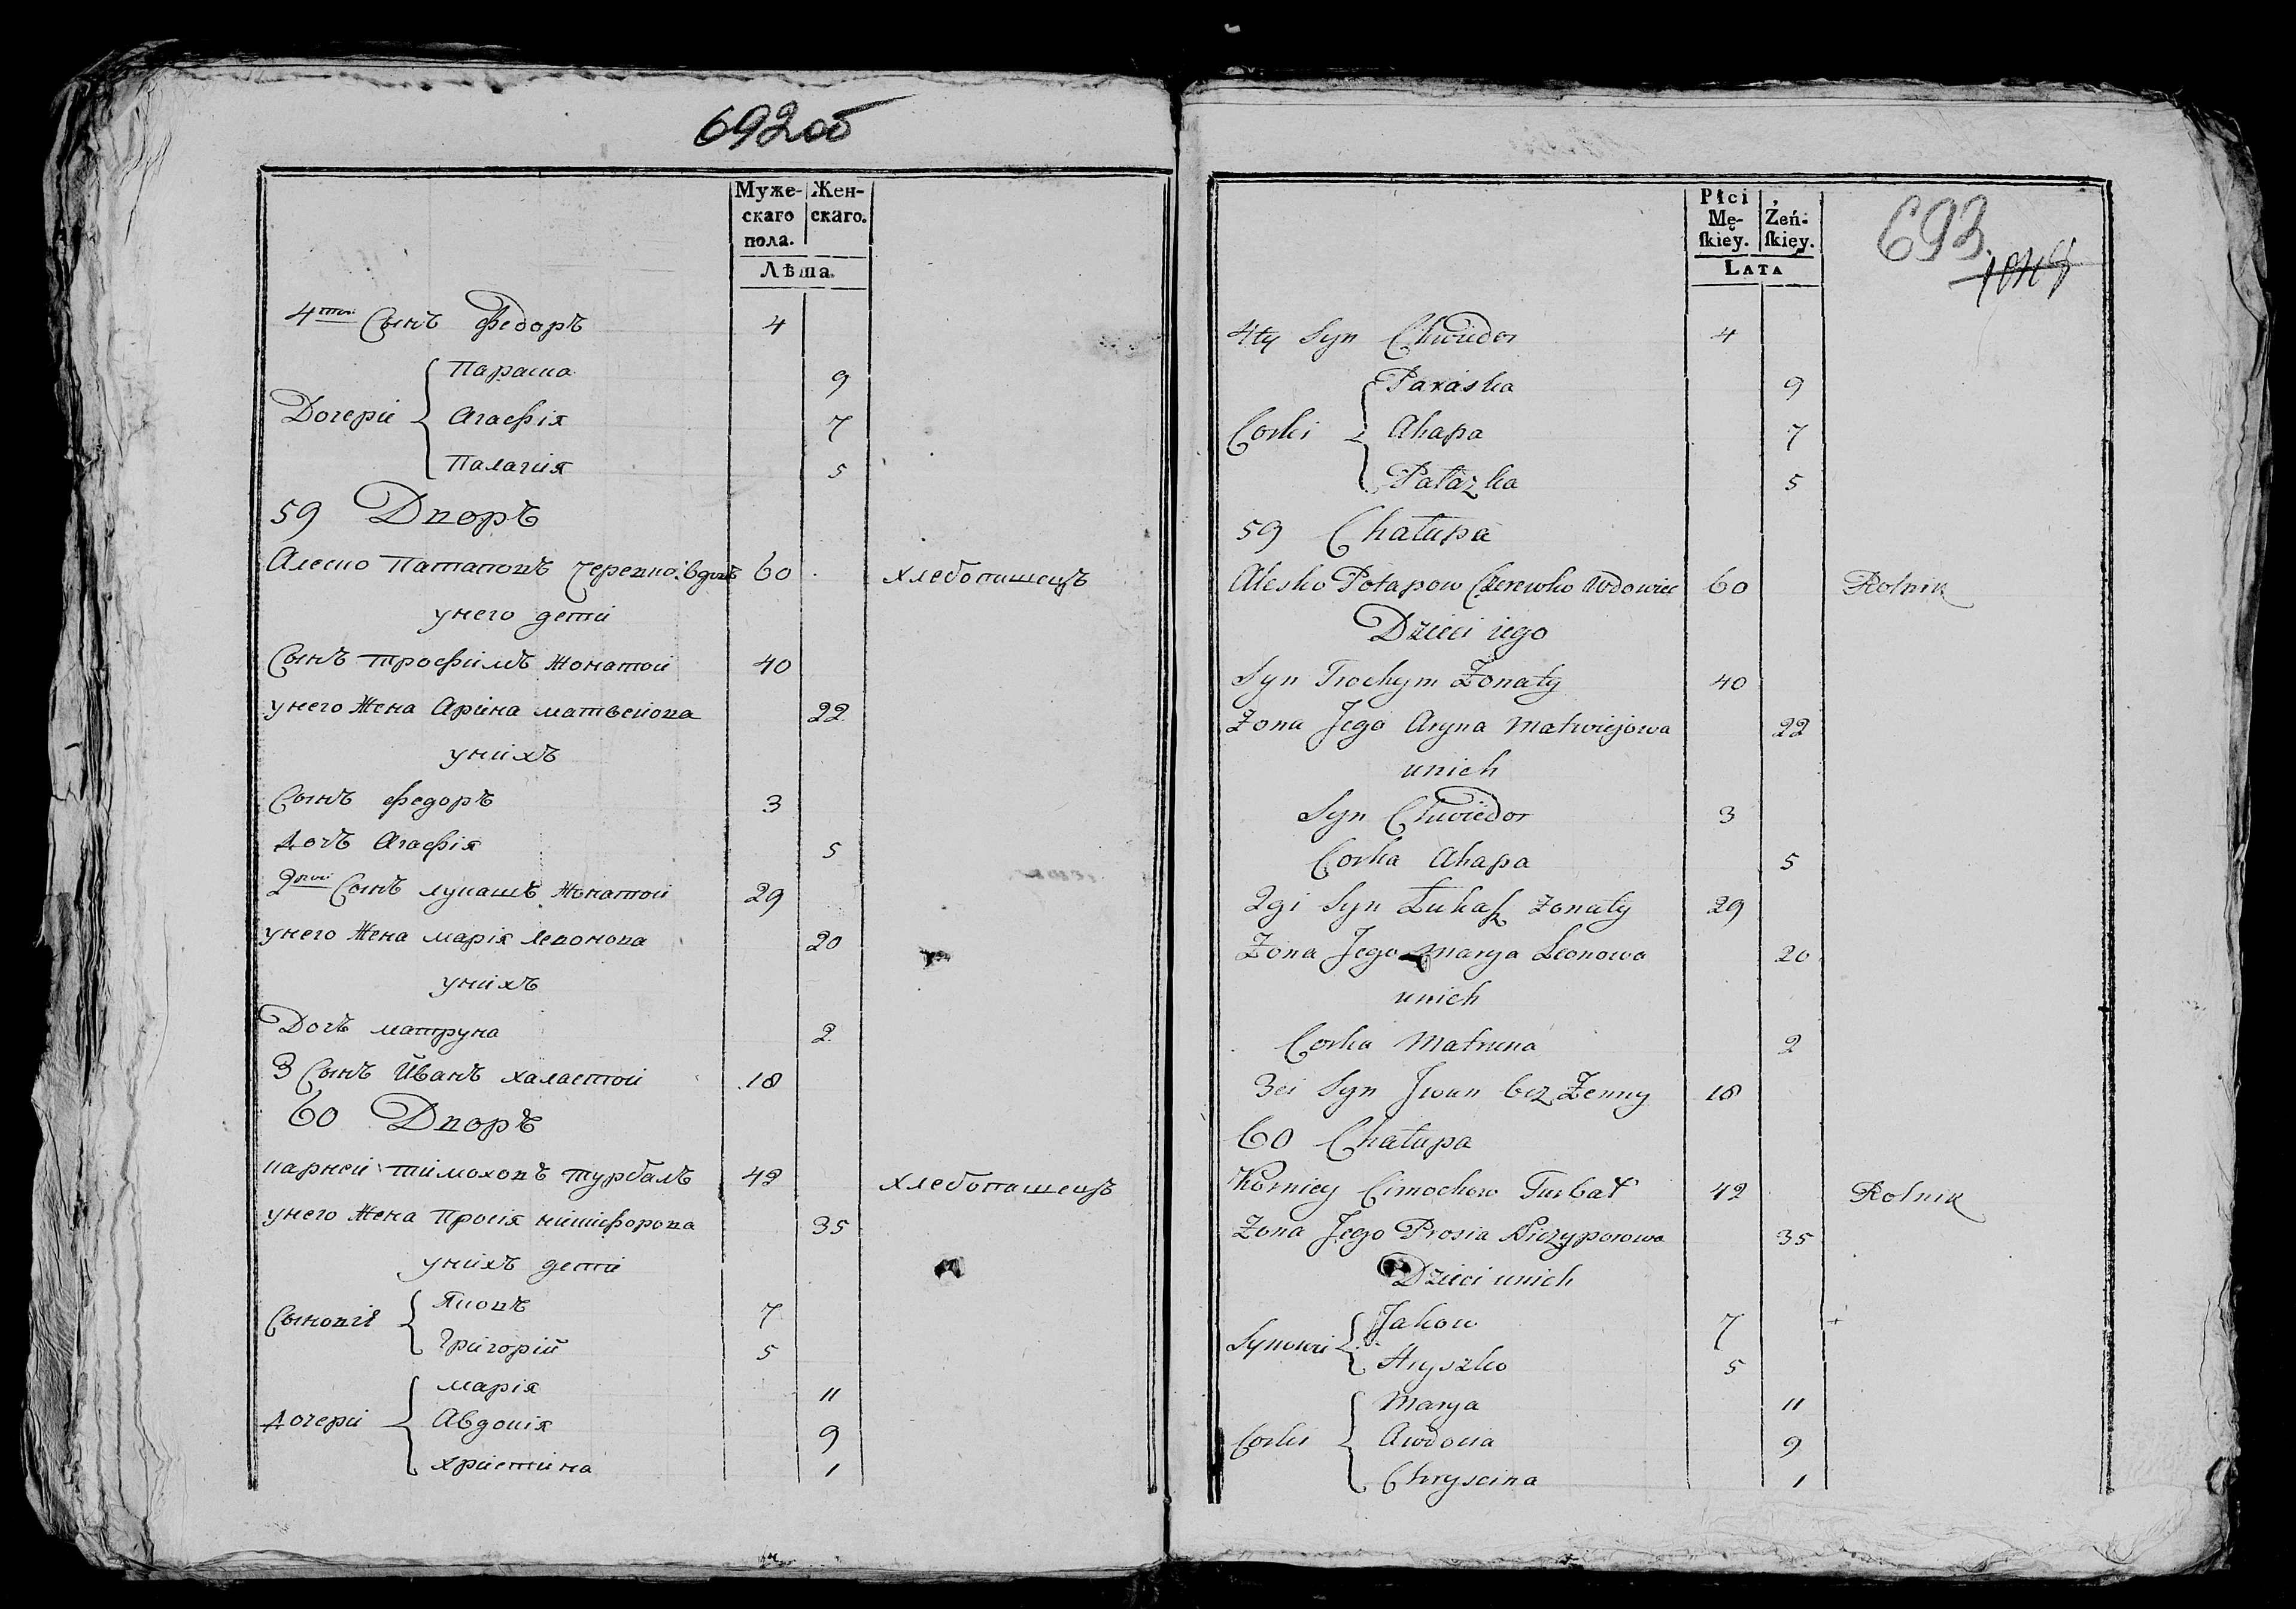 692об
Муже- Жен-
скаго скаго.
пола.
Лѣта
4той Сынъ Федоръ 4
Параска 9
Дочери Агафія 7
Палагия 5
59 Дворъ
Алеско Патаповъ Черевко вдовъ 60 хлебопашецъ
унего дети
Сынъ трофимъ жонатой 40
унего жена Арина матвеиова 22
унихъ
Сынъ федоръ 3
дочъ Агафія 5
2гои Сынъ лукашъ жонатой 29
унего жена марія левонова 20
унихъ
Дочъ матруна 2
3 Сынъ Иванъ халастой 18
60 Дворъ
карней тимоховъ турбалъ 42 хлебопашецъ
унего жена Просія никифорова 35
унихъ дети
Яковъ 7
Сынови Григорий 5
марія 11
дочери Авдокія 9
христина 1
Płci
Mę- Żeń-
ſkiey. ſkiey.
Lata
693
4ty Syn Chwiedor 4
Paraska 9
Corki Ahapa 7
Pałazka 5
59 Chałupa
Alesko Potapow Czerewko Wdowiec 60 Rolnik
Dzieci iego
Syn Trochym Żonaty 40
Żona Jego Aryna Matwiejowa 22
unich
Syn Chwiedor 3
Corka Ahapa 5
2gi Syn Łukaſz żonaty 29
Żona Jego Marya Leonowa 20
unich
Corka Matruna 2
3ci Syn Jwan bez Żenny 18
60 Chałupa
Korniey Cimochow Turbał 42 Rolnik
Żona Jego Prosia Niczyporowa 35
Dzieci unich
Jakow 7
Synowie Hryszko 5
Marya 11
Corki Awdocia 9
Chryscina 1